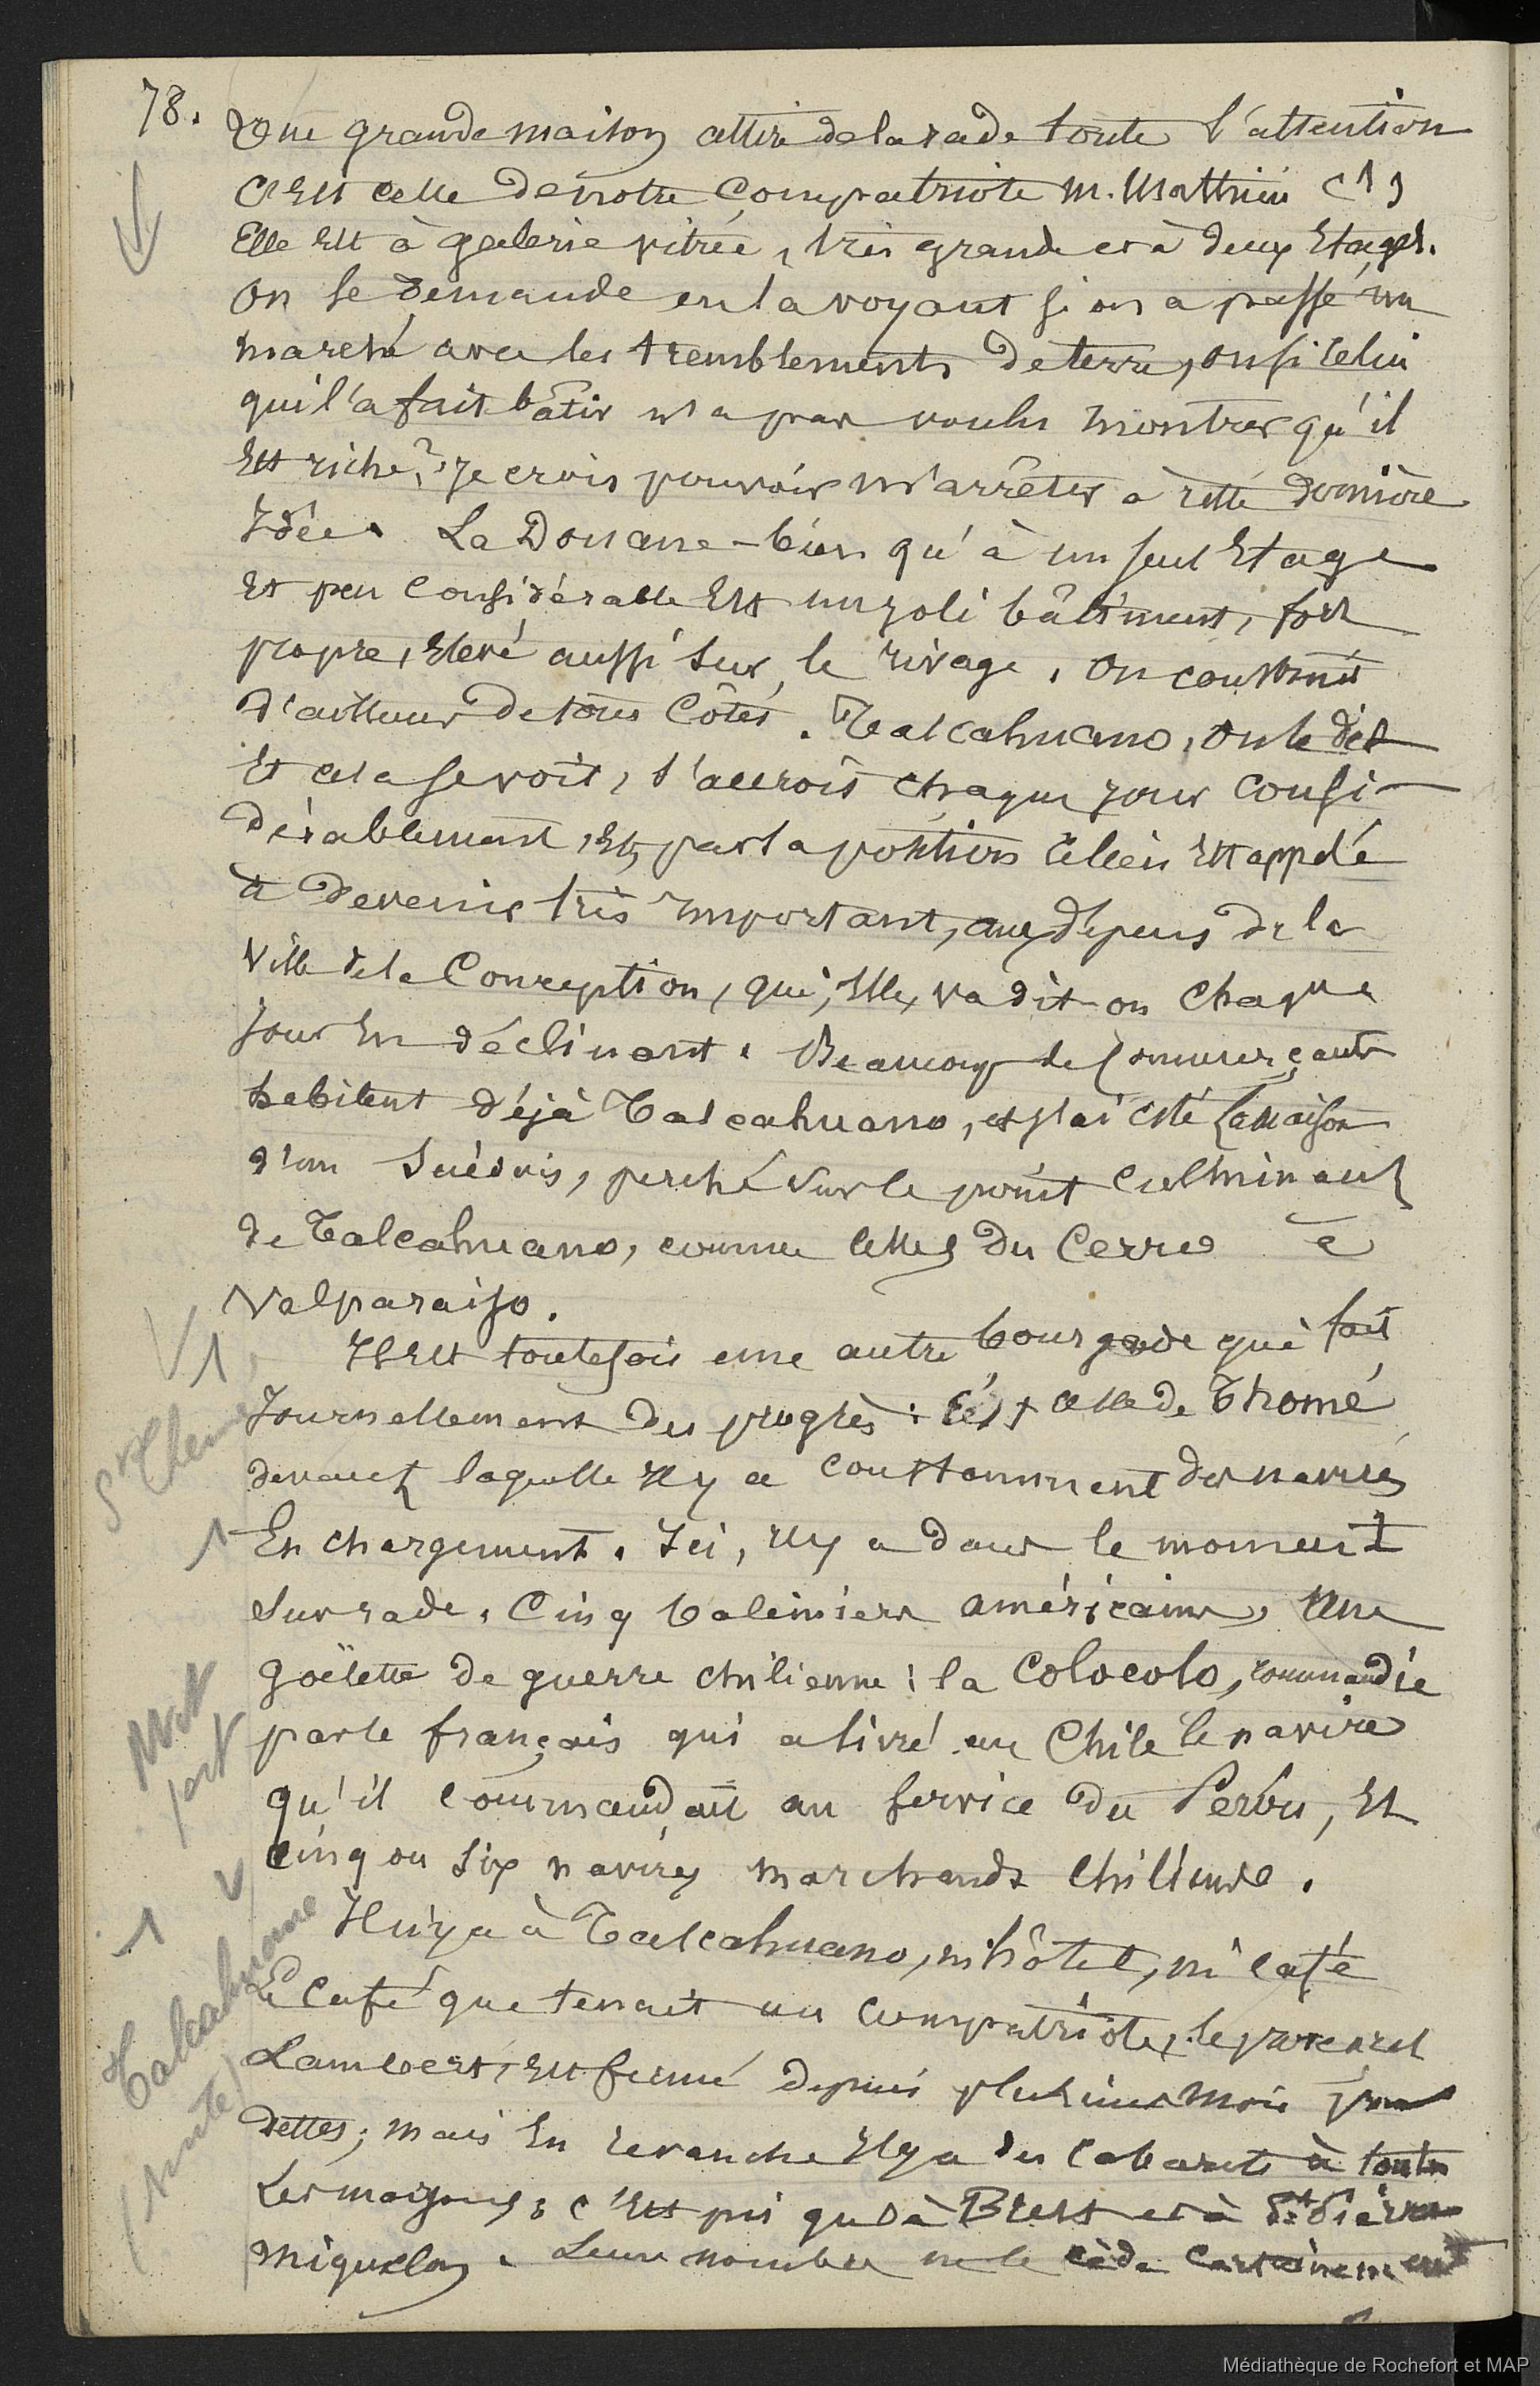 78.
Une grande maison attire de la rade toute l'attention
C'est celle de notre Compatriote M. Matthieu (1)
Elle est à galerie vitrée, très grande et à deux Etages.
On se demande en la voyant si on a passé un
marché avec les tremblements de terre, ou si celui
qui l'a fait bâtir n'a pas voulu montrer qu'il
Est riche? Je crois pouvoir m'arrêter à cette dernière
Idée. La Douane - bien qu'à un seul Etage
et peu Considérable Est un joli bâtiment, fort
propre, Elevé aussi sur le rivage. On construit
d'ailleurs de tous Côtés. Talcahuano, on le dit
Et cela se voit, s'accroit chaque jour consi-
dérablement, Et, par sa position celleci Est appelé
à devenir très important, aux dépens de la
Ville de la Conception, qui, Elle, va dit-on chaque
jour En déclinant. Beaucoup de Commerçants
habitent déjà Talcahuano, et j'ai cité la maison
d'un Suédois, perché sur le point culminant
de Talcahuano, comme celles du Cerro à
Valparaiso.
Il Est toutefois une autre bourgade qui fait
Journellement des progrès: C'est celle de Thomé
devant laquelle Il y a constamment des navires
En chargement. Ici, Il y a dans le moment
sur rade, Cinq baleiniers américains, Une
goëlette de guerre chilienne: la Colocolo, commandée
par le français qui a livré au Chile le navire
qu'il commandait au service du Pérou, Et
Cinq ou Six navires marchands Chiliens.
Il n'y a à Talcahuano, ni hôtel, ni café
Le Café que tenait un compatriote, le
Lambert, Est fermé depuis plusieurs mois pour
dettes; mais En revanche Il y a des Cabarets à toutes
Les maisons; c'Est pis qu'à Brest et à St Pierre
Miquelon. Leur nombre ne le cède certainement
Talcahuano
(suite)